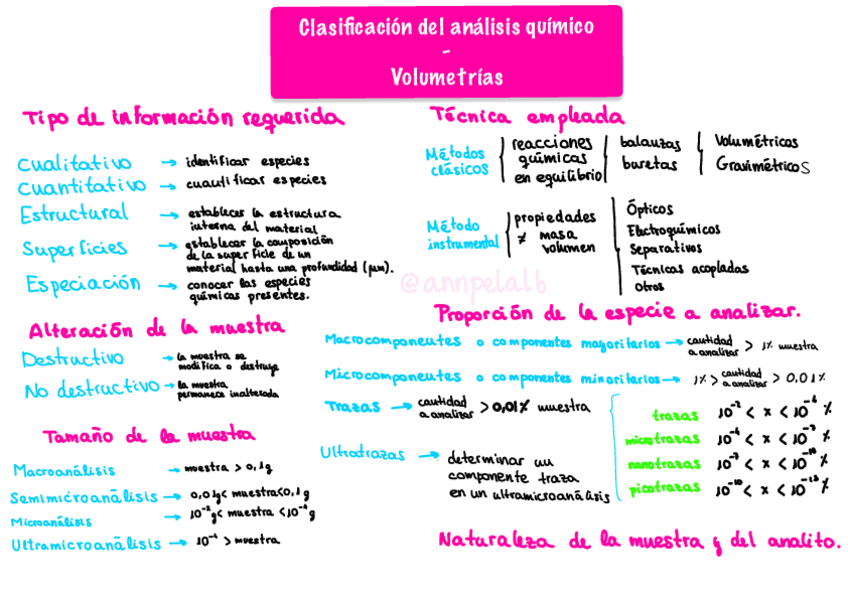 Clasificación del análisis químico
-
Volumetrías
Tipo de información requerida
Cualitativo → identificar especies
Cuantitativo → cuantificar especies
Estructural → establecer la estructura
interna del material
Superficies → establecer la composición
de la superficie de un
material hasta una profundidad (µm).
Especiación → conocer las especies
químicas presentes.
Alteración de la muestra
Destructivo → la muestra se
modifica o destruye
No destructivo → la muestra
permanece inalterada
Tamaño de la muestra
Macroanálisis → muestra > 0,1g
Semimicroanálisis → 0,01g< muestra<0,1g
Microanálisis → 10⁻²g< muestra <10⁻⁴g
Ultramicroanálisis → 10⁻⁴ > muestra
Técnica empleada
Métodos
clásicos
reacciones
químicas
en equilibrio
balanzas
buretas
Volumétricos
Gravimétricos
Método
instrumental
propiedades
≠ masa
volumen
Ópticos
Electroquímicos
Separativos
Técnicas acopladas
Otros
@annpelalb
Proporción de la especie a analizar.
Macrocomponentes o componentes mayoritarios → cantidad
a analizar > 1% muestra
Microcomponentes o componentes minoritarios → 1% > cantidad
a analizar > 0,01%
Trazas → cantidad
a analizar > 0,01% muestra
Ultratrazas → determinar un
componente traza
en un ultramicroanálisis
trazas 10⁻² < x < 10⁻⁴ %
microtrazas 10⁻⁴ < x < 10⁻⁷ %
nanotrazas 10⁻⁷ < x < 10⁻¹⁰ %
picotrazas 10⁻¹⁰ < x < 10⁻¹³ %
Naturaleza de la muestra y del analito.